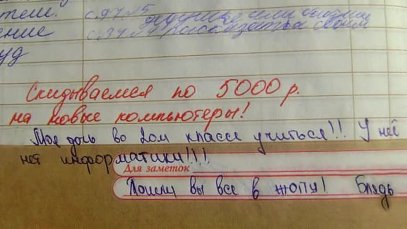 тели.
с.97.№5
ение
Скидываемся по 5000 р.
на новые компьютеры!
Моя дочь во 2ом классе учиться!! У неё
нет информатики!!!
Для заметок
Пошли вы все в жопу! Блядь